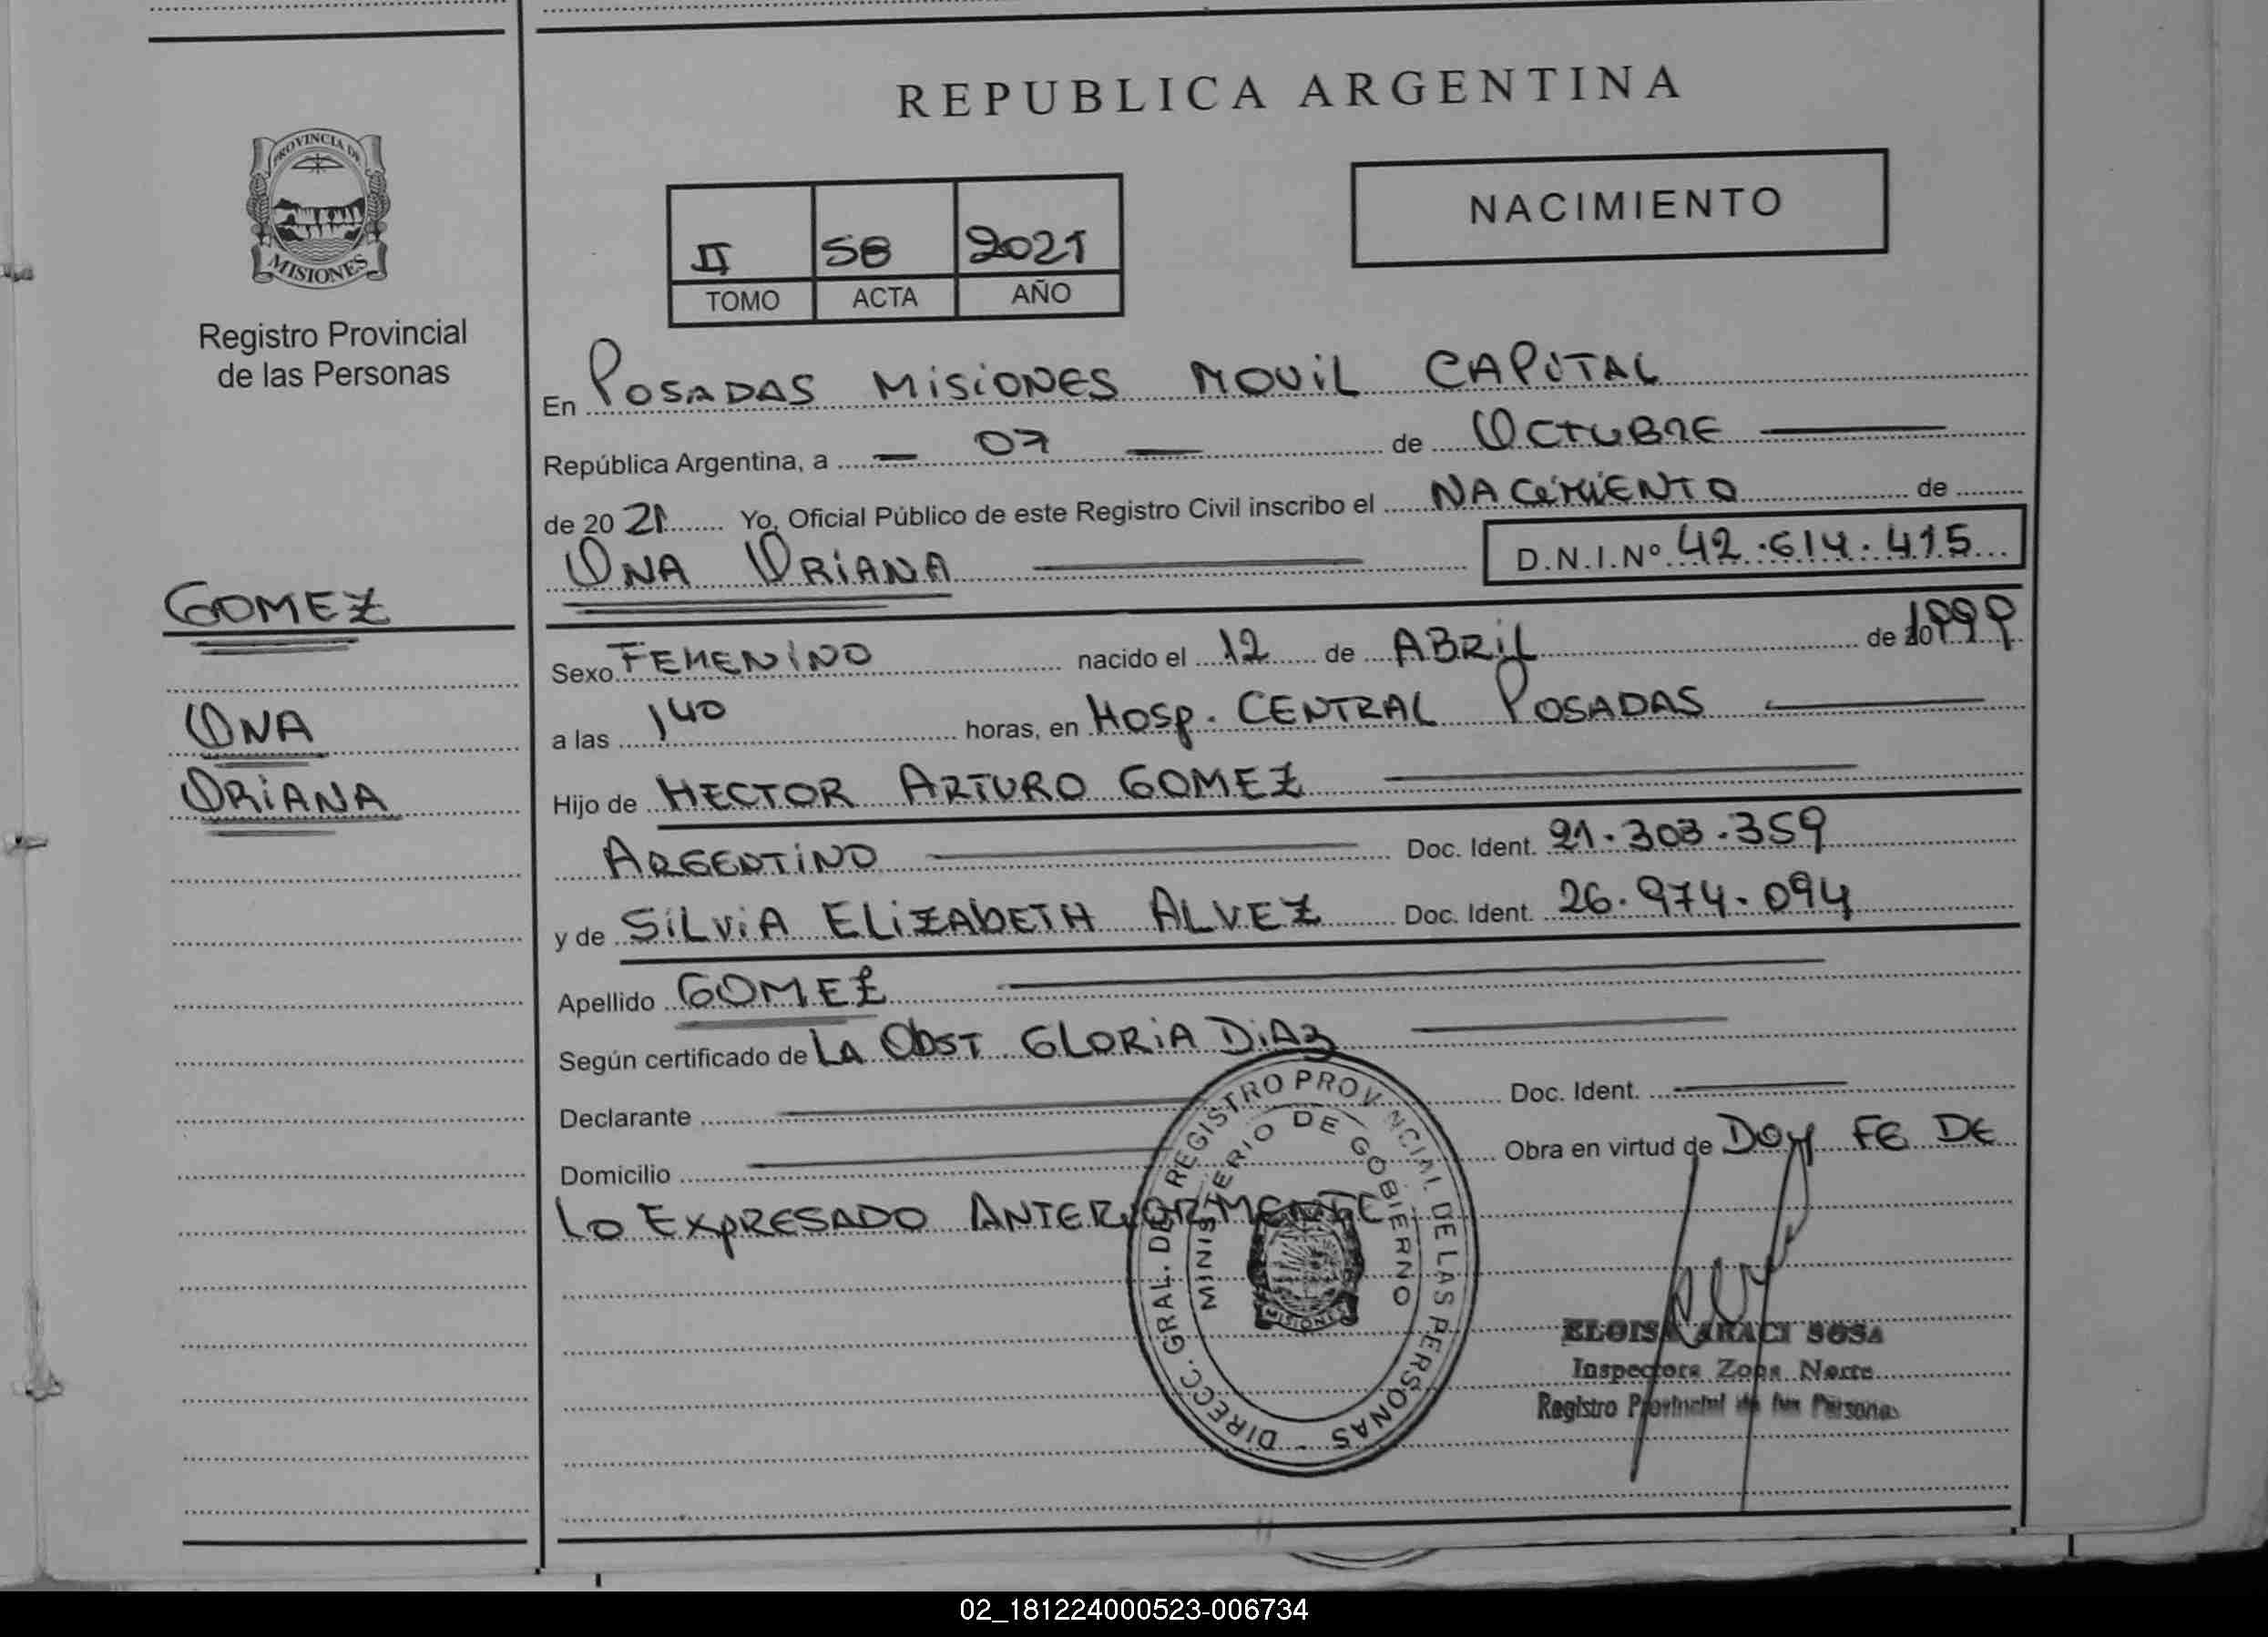 REPUBLICA ARGENTINA
PROVINCIA DE
MISIONES
Registro Provincial
de las Personas
NACIMIENTO
II 58 2021
TOMO ACTA AÑO
En POSADAS MISIONES MOVIL CAPITAL
República Argentina, a — 07 — de OCTUBRE
de 20 21 Yo, Oficial Público de este Registro Civil inscribo el NACIMIENTO de
ONA ORIANA D.N.I.Nº 42.614.415
GOMEZ
ONA
ORIANA
Sexo FEMENINO nacido el 12 de ABRIL de 1999
a las 140 horas, en HOSP. CENTRAL POSADAS
Hijo de HECTOR ARTURO GOMEZ
ARGENTINO Doc. Ident. 21.303.359
y de SILVIA ELIZABETH ALVEZ Doc. Ident. 26.974.094
Apellido GOMEZ
Según certificado de LA OBST GLORIA DIAZ
Declarante Doc. Ident.
Domicilio Obra en virtud de DOY FE DE
LO EXPRESADO ANTERIORMENTE
DIRECC. GRAL. DEL REGISTRO PROVINCIAL DE LAS PERSONAS -
MINISTERIO DE GOBIERNO
MISIONES
ELOISA ARACI SOSA
Inspectora Zona Norte
Registro Provincial de las Personas
02_181224000523-006734